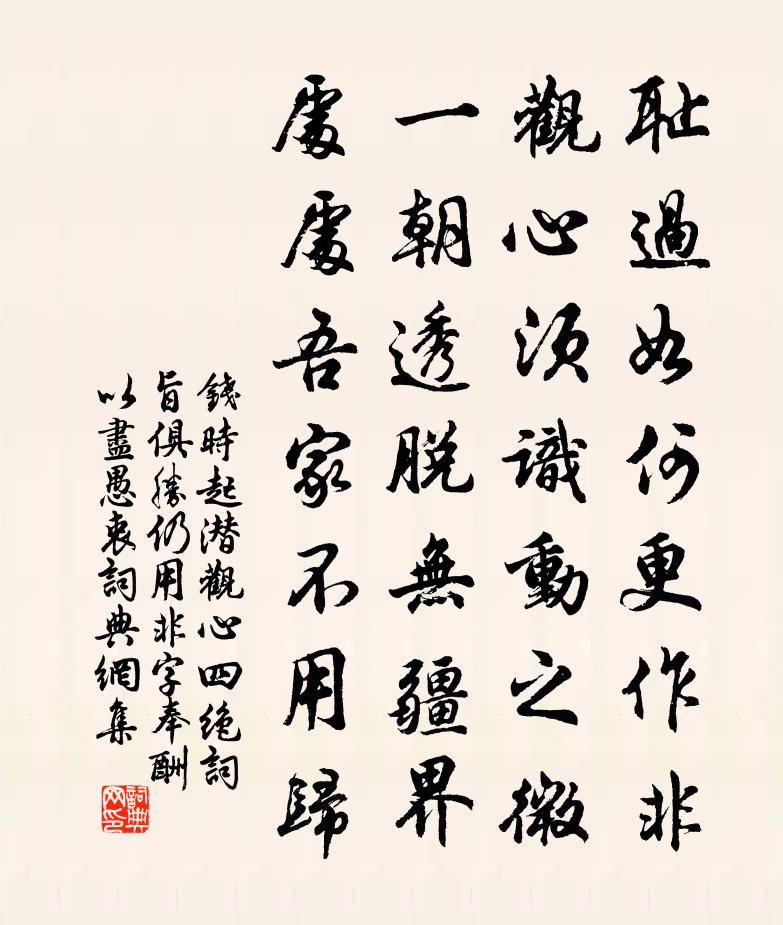 耻過如何更作非
觀心須識動之微
一朝透脱無疆界
處處吾家不用歸
錢時起潜觀心四絶詞
旨俱勝仍用非字奉酬
以盡愚衷詞典網集
詞典
网印